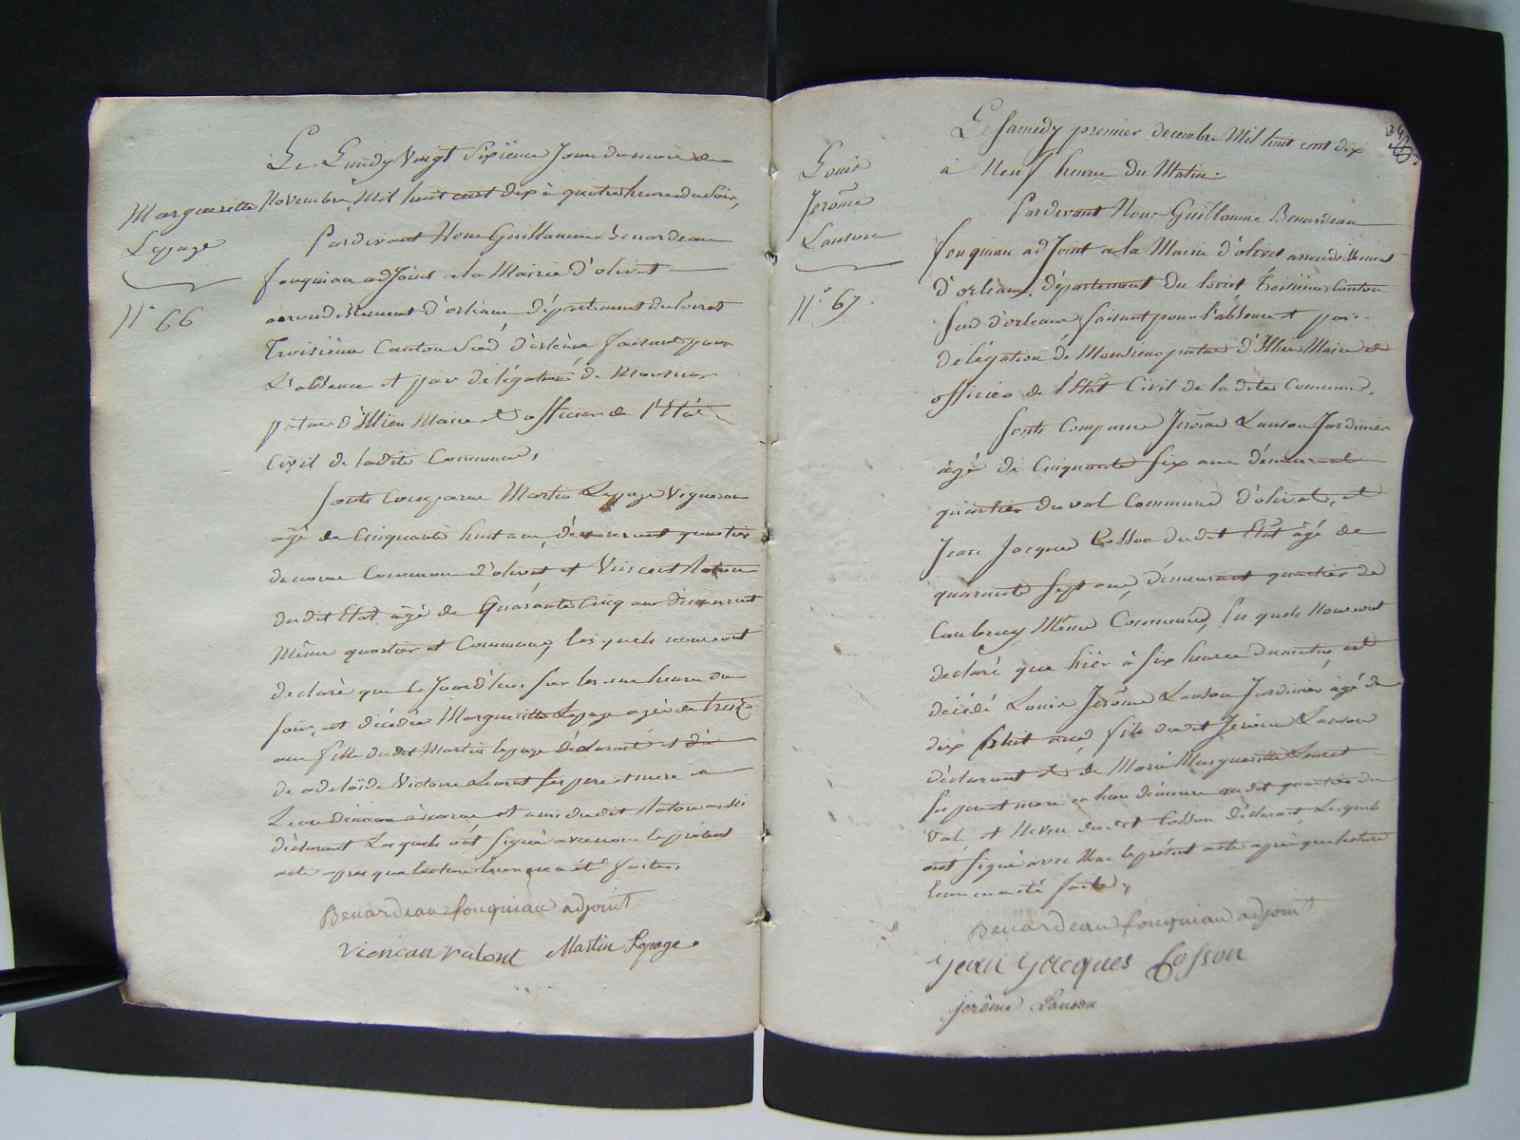 Margueritte
Lepage
N° 66
Le Lundy Vingt Sixième Jour du mois de
Novembre Mil huit cent dix à quatre heure du Soir,
Pardevant Nous Guillaume Benardeau
fouquiau adjoint a la Mairie d'olivet
arrondissement d'orléans département du loiret
Troisième Canton Sud d'orléans faisant pour
L'absence et par délégation de Monsieur
Maire et officier de l'Etat
Civil de ladite Commune,
sont Comparu Martin Lepage Vigneron
agé de Cinquante huit ans, démeurant quartier
Commune d'olivet et
dudit Etat agé de Quarante Cinq ans démeurant
Même quartier et Commune, lesquels nous ont
declaré que le Jourd'hui sur les une heure du
soir, est décédée Margueritte Lepage agée de treize
ans fille dudit Martin lepage déclarant et de
de adelaïde Victoire ses pere et mere
et amis dudit aussi
déclarant Lesquels ont signé avec nous le présent
acte apres que lecture leur en a été faite.
Benardeau fouquiau adjoint
Martin Lepage
Louis
Jerôme
Lanson
N° 67.
Le Samedy premier decembre Mil huit cent dix
à Neuf heure du Matin.
Pardevant Nous Guillaume Benardeau
fouquiau adjoint a la Mairie d'olivet arrondissement
d'orléans, département du loiret Troisième Canton
Sud d'orléans faisant pour l'absence et par
délégation de Monsieur Maire et
officier de l'Etat Civil de la dite Commune,
sont Comparu Jerôme Lanson Jardinier
âgé de Cinquante Six ans démeurant
quartier du val Commune d'olivet, et
Jean Jacques Cosson dudit Etat âgé de
quarante Sept ans, démeurant quartier de
Caubray Même Commune, lesquels Nous ont
declaré que hier à six heures du matin, est
décédé Louis Jerôme Lanson Jardinier agé de
dix huit ans fils dudit Jerôme Lanson
déclarant et de Marie Marguerite
ses pere et mere en leur démeure audit quartier du
Val, et Neveu dudit Cosson déclarant Lesquels
ont signé avec Nous le présent acte après que lecture
leur en a été faite,
Benardeau fouquiau adjoint
Jean Jacques Cosson
jerôme Lanson